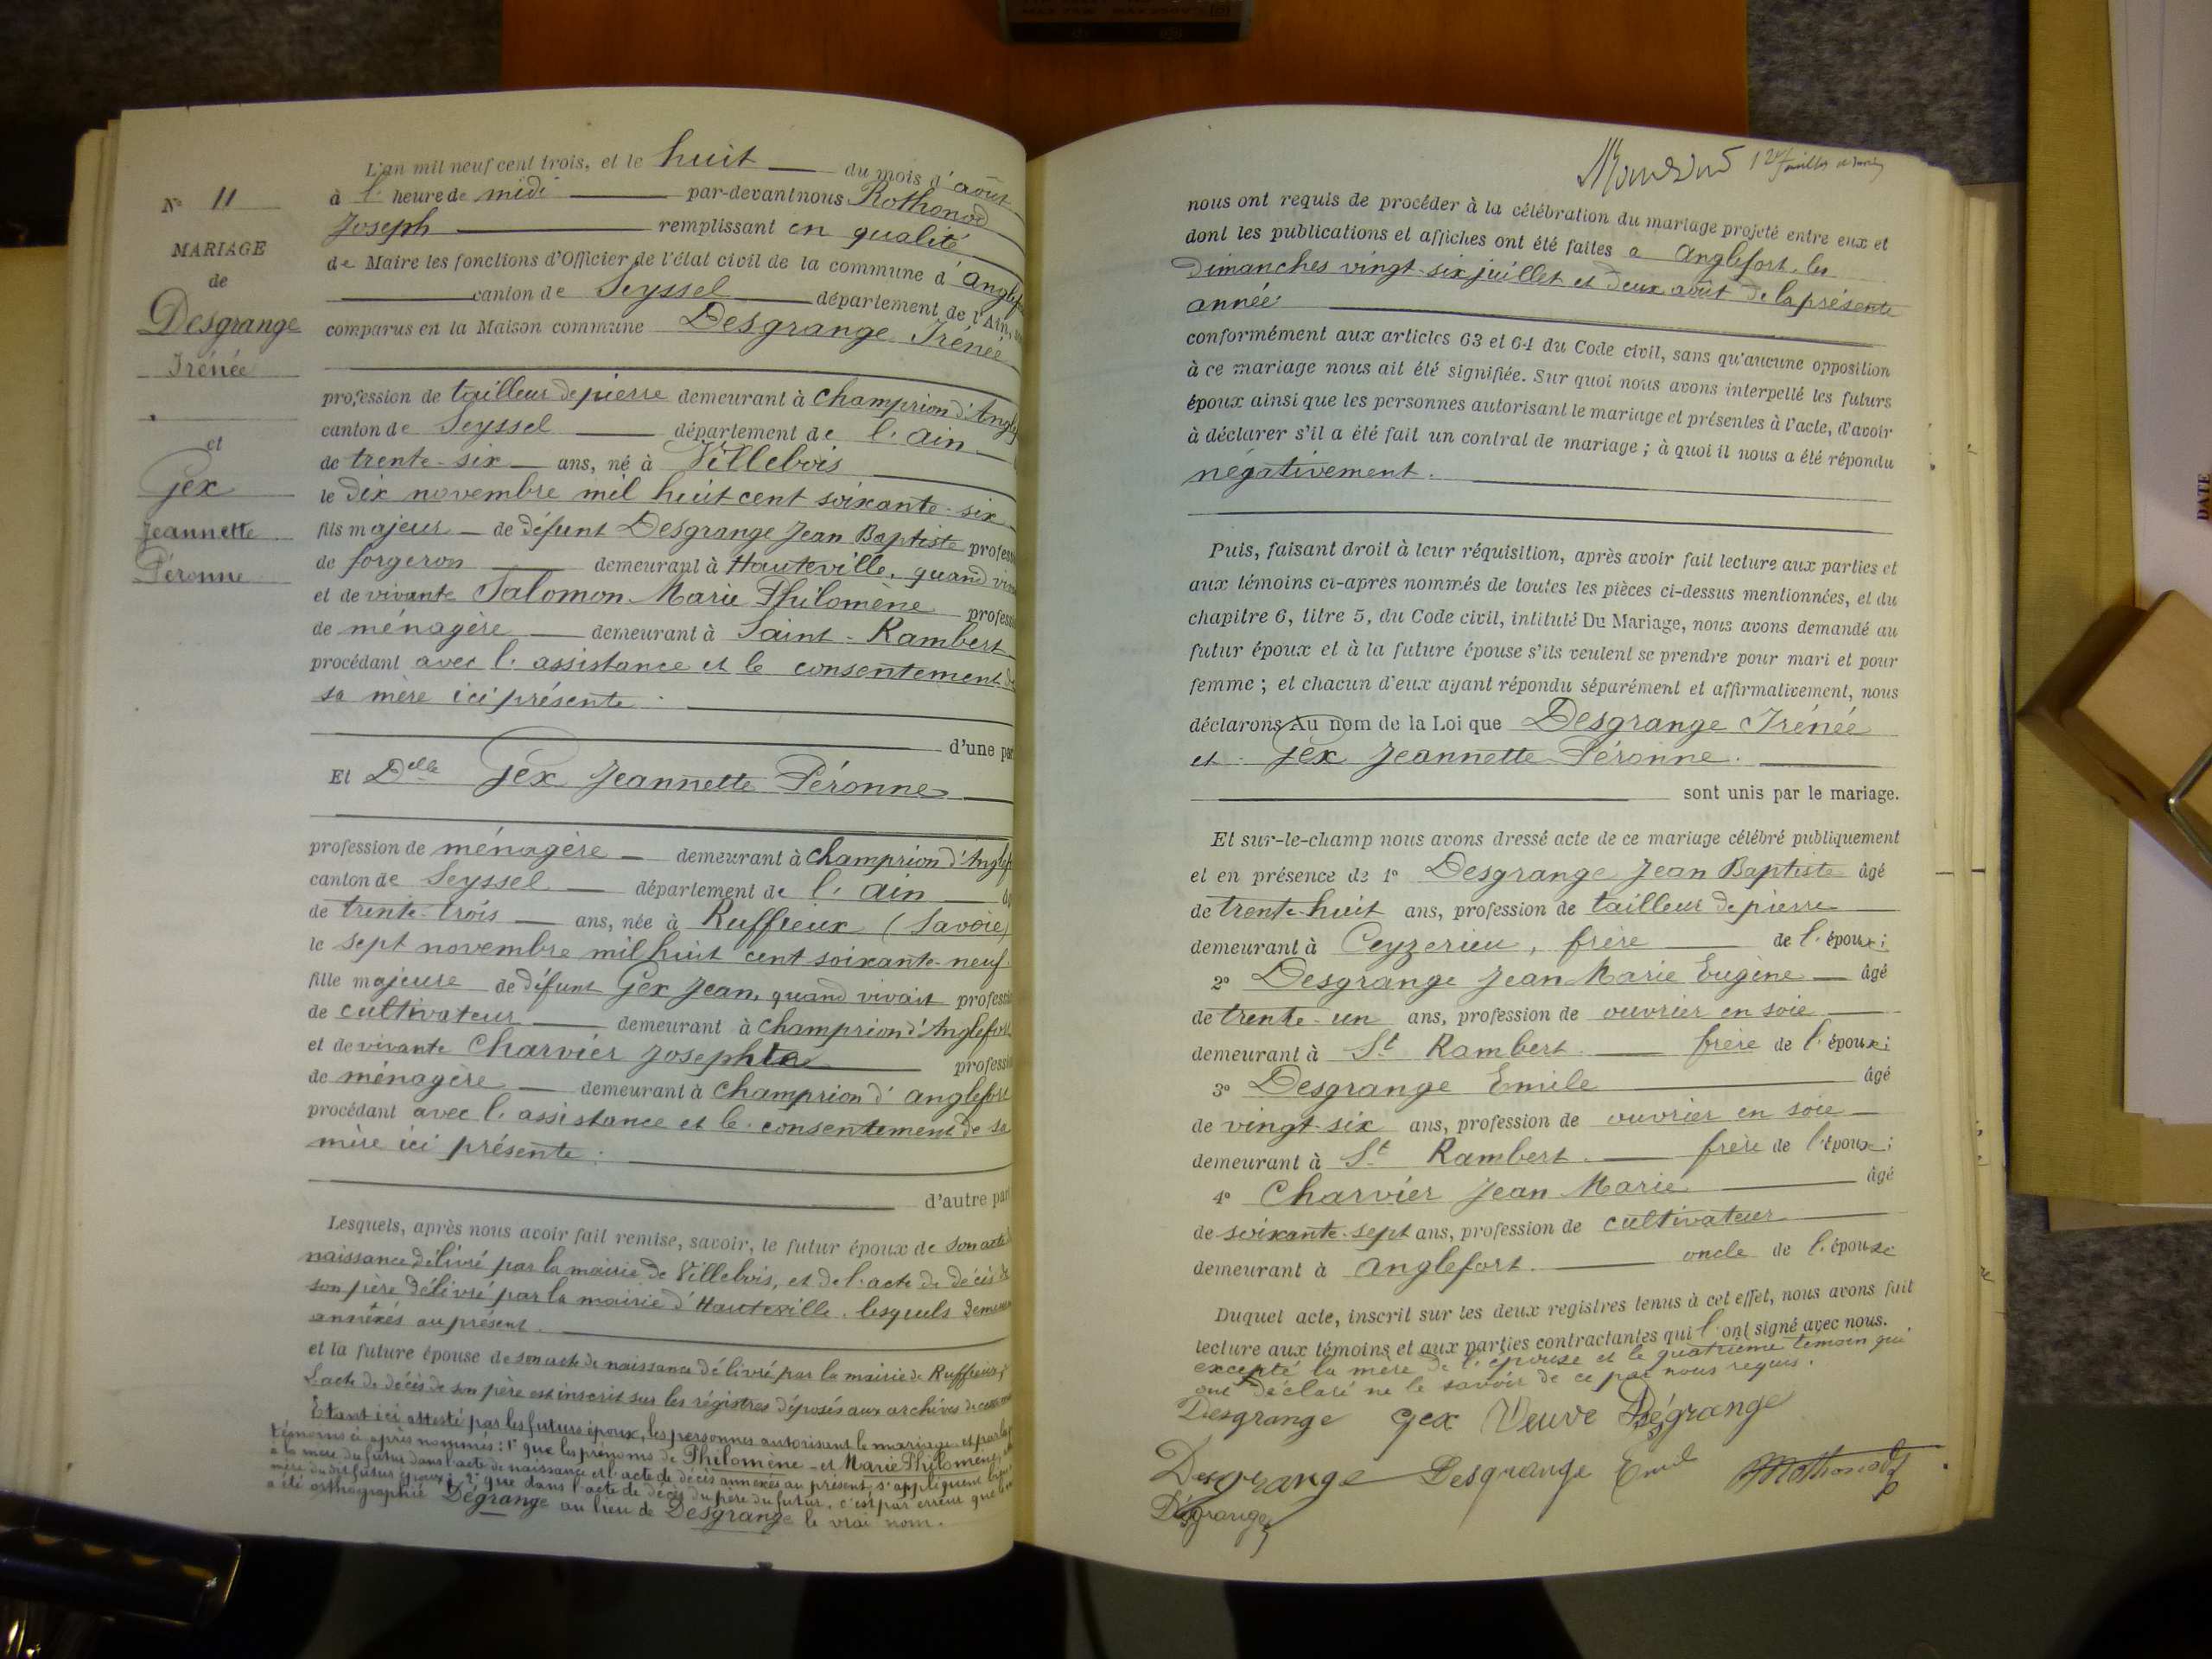 N° 11
MARIAGE
de
Desgrange
Irénée
et
Gex
Jeannette
Péronne
L'an mil neuf cent trois, et le huit du mois d'août
à l'heure de midi par-devant nous Rothonod
Joseph remplissant en qualité
de Maire les fonctions d'Officier de l'état civil de la commune d'Anglef
canton de Seyssel département de l'Ain,
comparus en la Maison commune Desgrange Irénée
profession de tailleur de pierre demeurant à Champrion d'Anglef
canton de Seyssel département de l'Ain
de trente-six ans, né à Villebois
le dix novembre mil huit cent soixante-six
fils majeur de défunt Desgrange Jean Baptiste profess
de forgeron demeurant à Hauteville, quand viv
et de vivante Salomon Marie Philomène profess
de ménagère demeurant à Saint-Rambert
procédant avec l'assistance et le consentement de
sa mère ici présente
d'une par
Et Delle Gex Jeannette Péronne
profession de ménagère demeurant à Champrion d'Anglef
canton de Seyssel département de l'Ain
de trente-trois ans, née à Ruffieux (Savoie)
le sept novembre mil huit cent soixante-neuf
fille majeure de défunt Gex Jean, quand vivait professi
de cultivateur demeurant à Champrion d'Anglefort
et de vivante Charvier Josephte professi
de ménagère demeurant à Champrion d'Anglefort
procédant avec l'assistance et le consentement de sa
mère ici présente.
d'autre part
Lesquels, après nous avoir fait remise, savoir, le futur époux de son acte de
naissance délivré par la mairie de Villebois, et de l'acte de décès de
son père délivré par la mairie d'Hauteville, lesquels demeur
annexés au présent.
et la future épouse de son acte de naissance délivré par la mairie de Ruffieux,
L'acte de décès de son père est inscrit sur les régistres déposés aux archives de
Etant ici attesté par les futurs époux, les personnes autorisant le mariage et par les
témoins ci après nommés: 1° que les prénoms de Philomène et Marie Philomène,
à la mère du futur dans l'acte de naissance et l'acte de décès annexés au présent, s'appliquent
mère du dit futur époux; 2° que dans l'acte de décès du père du futur, c'est par erreur que
a été orthographié Dégrange au lieu de Desgrange le vrai nom.
nous ont requis de procéder à la célébration du mariage projeté entre eux et
dont les publications et affiches ont été faites a Anglefort, les
dimanches vingt-six juillet et deux août de la présente
année
conformément aux articles 63 et 64 du Code civil, sans qu'aucune opposition
à ce mariage nous ait été signifiée. Sur quoi nous avons interpellé les futurs
époux ainsi que les personnes autorisant le mariage et présentes à l'acte, d'avoir
à déclarer s'il a été fait un contrat de mariage; à quoi il nous a été répondu
négativement.
Puis, faisant droit à leur réquisition, après avoir fait lecture aux parties et
aux témoins ci-après nommés de toutes les pièces ci-dessus mentionnées, et du
chapitre 6, titre 5, du Code civil, intitulé Du Mariage, nous avons demandé au
futur époux et à la future épouse s'ils veulent se prendre pour mari et pour
femme; et chacun d'eux ayant répondu séparément et affirmativement, nous
déclarons Au nom de la Loi que Desgrange Irénée
et Gex Jeannette Péronne.
sont unis par le mariage.
Et sur-le-champ nous avons dressé acte de ce mariage célébré publiquement
et en présence de 1° Desgrange Jean Baptiste âgé
de trente-huit ans, profession de tailleur de pierre
demeurant à Ceyzerieu, frère de l'époux;
2° Desgrange Jean Marie Eugène âgé
de trente-un ans, profession de ouvrier en soie
demeurant à St Rambert frère de l'époux;
3° Desgrange Emile âgé
de vingt-six ans, profession de ouvrier en soie
demeurant à St Rambert. frère de l'époux;
4° Charvier Jean Marie âgé
de soixante-sept ans, profession de cultivateur
demeurant à Anglefort. oncle de l'épouse
Duquel acte, inscrit sur les deux registres tenus à cet effet, nous avons fait
lecture aux témoins et aux parties contractantes qui l'ont signé avec nous.
excepté la mère de l'épouse et le quatrième témoin qui
ont déclaré ne le savoir de ce par nous requis.
Desgrange Gex Veuve Désgrange
Desgrange Desgrange Emile Rothonod
Désgrange
DATE